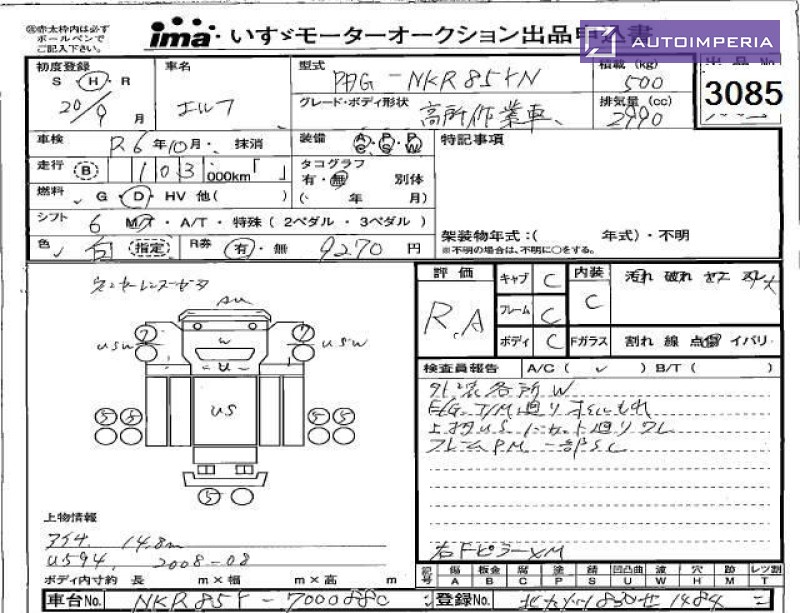 ㊟赤太枠内は必ず
ボールペンで
ご記入下さい。
ima・いすゞモーターオークション出品申込書
AUTOIMPERIA
初度登録 S・H・R 20/9 月
車名 エルフ
型式 PDG-NKR85YN
積載(kg) 500
出品No. 3085
グレード・ボディ形状 高所作業車
排気量(cc) 2990
車検 R6年10月・ 抹消
装備 A/C・P/S・P/W
特記事項
走行 B 103 000km「 」
タコグラフ 有・無 別体
( 年 月)
燃料 G・D・HV 他( )
シフト 6 M/T・A/T・特殊(2ペダル・3ペダル)
色 白 (指定) R券 有・無 9270 円
架装物年式:( 年式)・不明
※不明の場合は、不明に○をする。
評価 R.A
キャブ C
フレーム C
ボディ C
内装 C 汚れ 破れ
Fガラス 割れ 線 点傷 イバリ
検査員報告 A/C( ✓ )B/T( )
外装各所W
E/G.T/M廻りオイルもれ
フレームPM 一部SC
右FピラーXM
AW
7 7
usw W usw
U
US
5 8 5 5
5
上物情報
アイチ 14.8m
U594 2008-08
ボディ内寸約 長 m×幅 m×高 m
記号 傷A 板金B 腐C 塗P 錆S 凹凸曲U 波W 穴H 跡M レンズ割T
車台No. NKR85Y-
登録No.